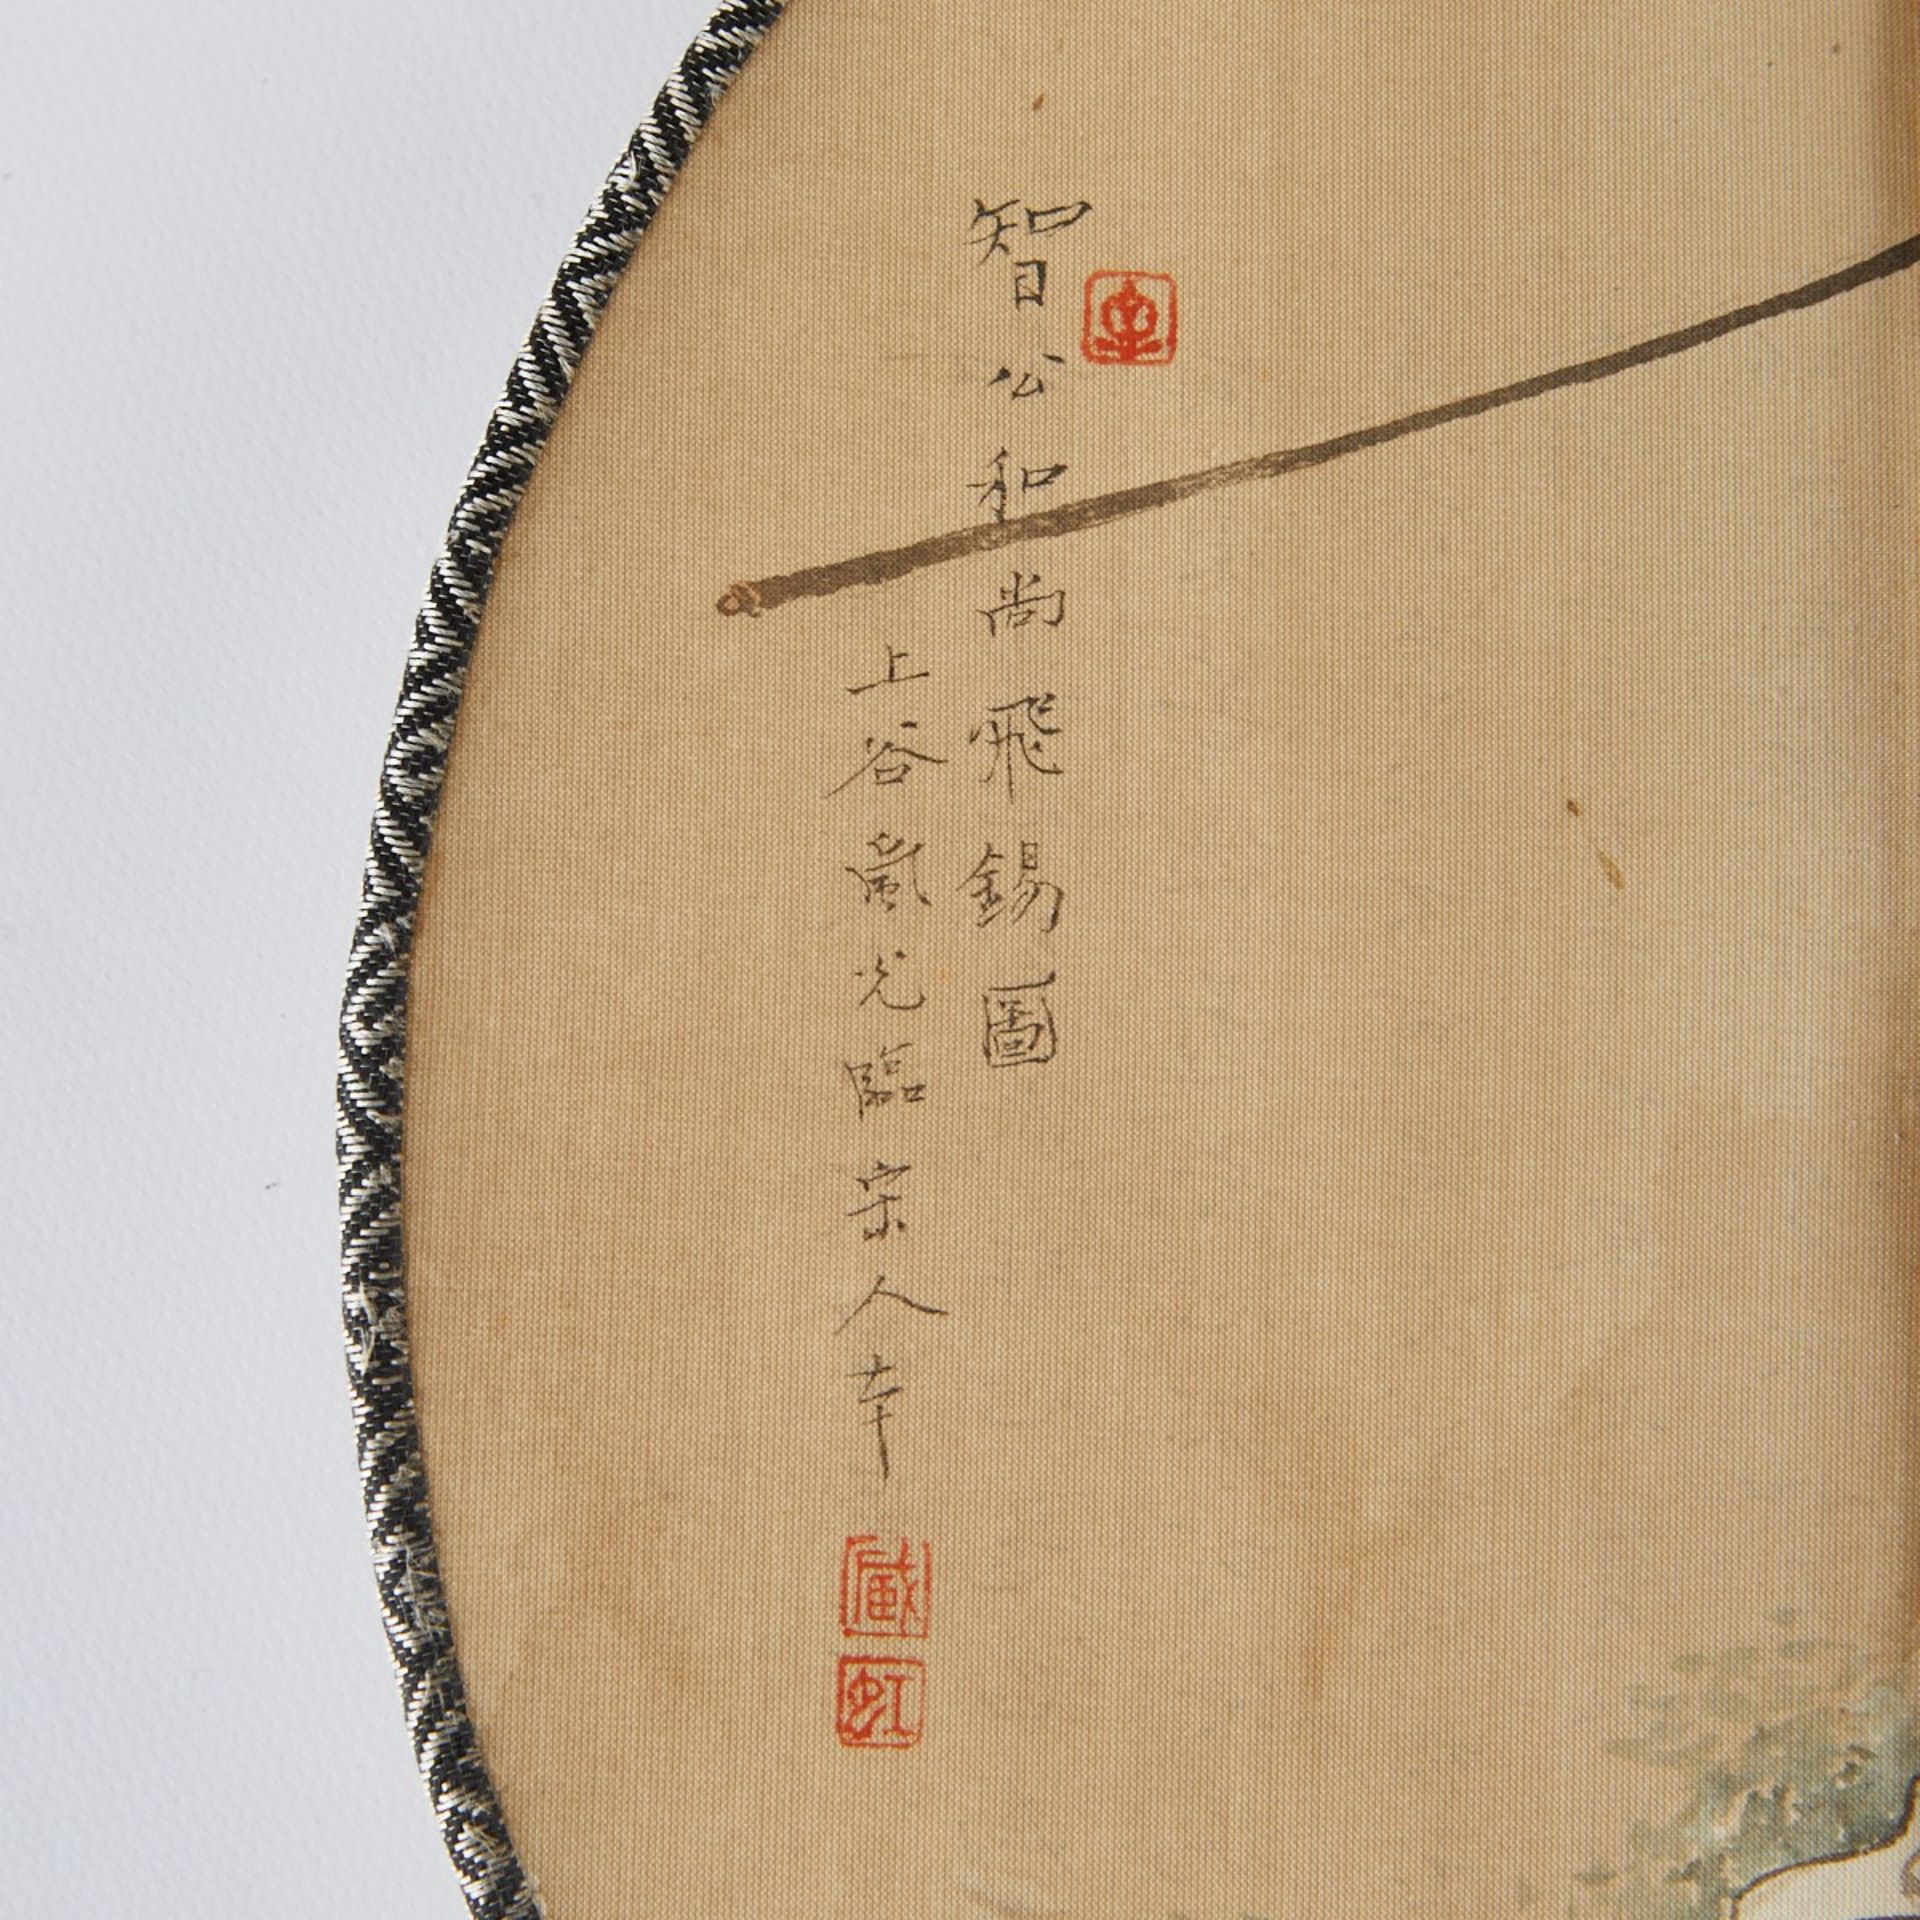 智公和尚飛錫圖
上谷嵐光臨宗人本
虹